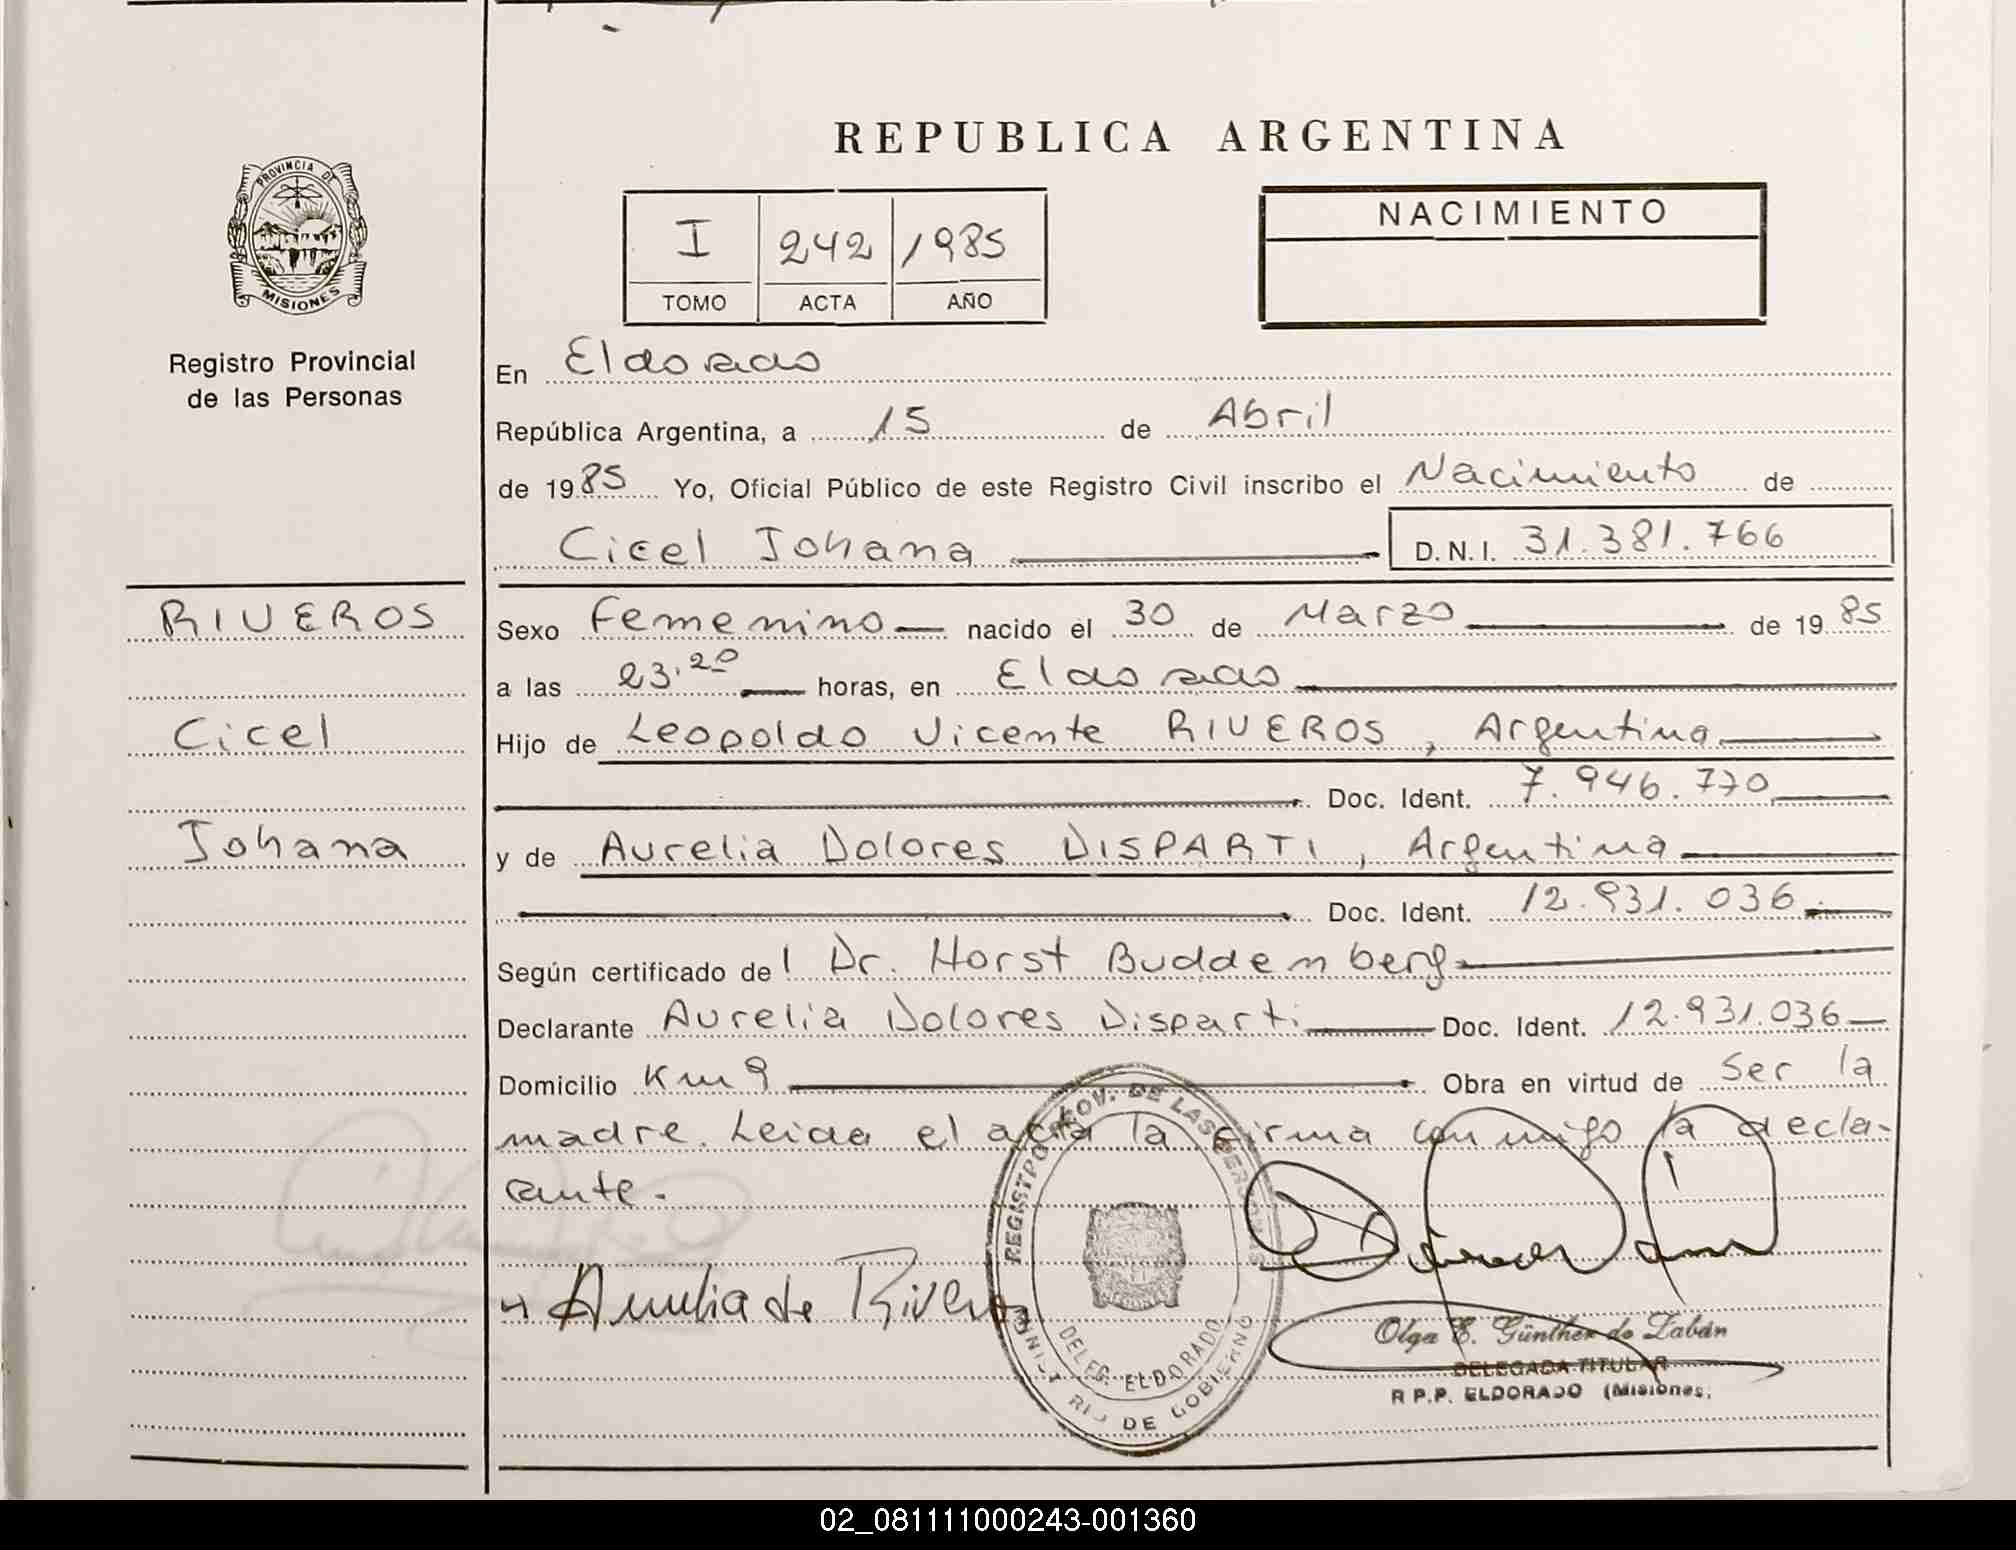 REPUBLICA ARGENTINA
PROVINCIA DE
MISIONES
Registro Provincial
de las Personas
I 242 1985
TOMO ACTA AÑO
NACIMIENTO
En Eldorado
República Argentina, a 15 de Abril
de 1985 Yo, Oficial Público de este Registro Civil inscribo el Nacimiento de
Cicel Johana D.N.I. 31.381.766
RIVEROS
Cicel
Johana
Sexo Femenino nacido el 30 de Marzo de 1985
a las 23.20 horas, en Eldorado
Hijo de Leopoldo Vicente RIVEROS, Argentina
Doc. Ident. 7.946.770
y de Aurelia Dolores DISPARTI, Argentina
Doc. Ident. 12.931.036
Según certificado del Dr. Horst Buddemberg
Declarante Aurelia Dolores Disparti Doc. Ident. 12.931.036
Domicilio Km 9 Obra en virtud de Ser la
madre. Leida el acta la firma conmigo la decla-
rante.
Aurelia de Riveros
REGISTRO PROV. DE LAS PERSONAS
DELEG. ELDORADO
MINISTERIO DE GOBIERNO
Olga E. Günther de Zabán
DELEGADA TITULAR
R.P.P. ELDORADO (Misiones)
02_081111000243-001360